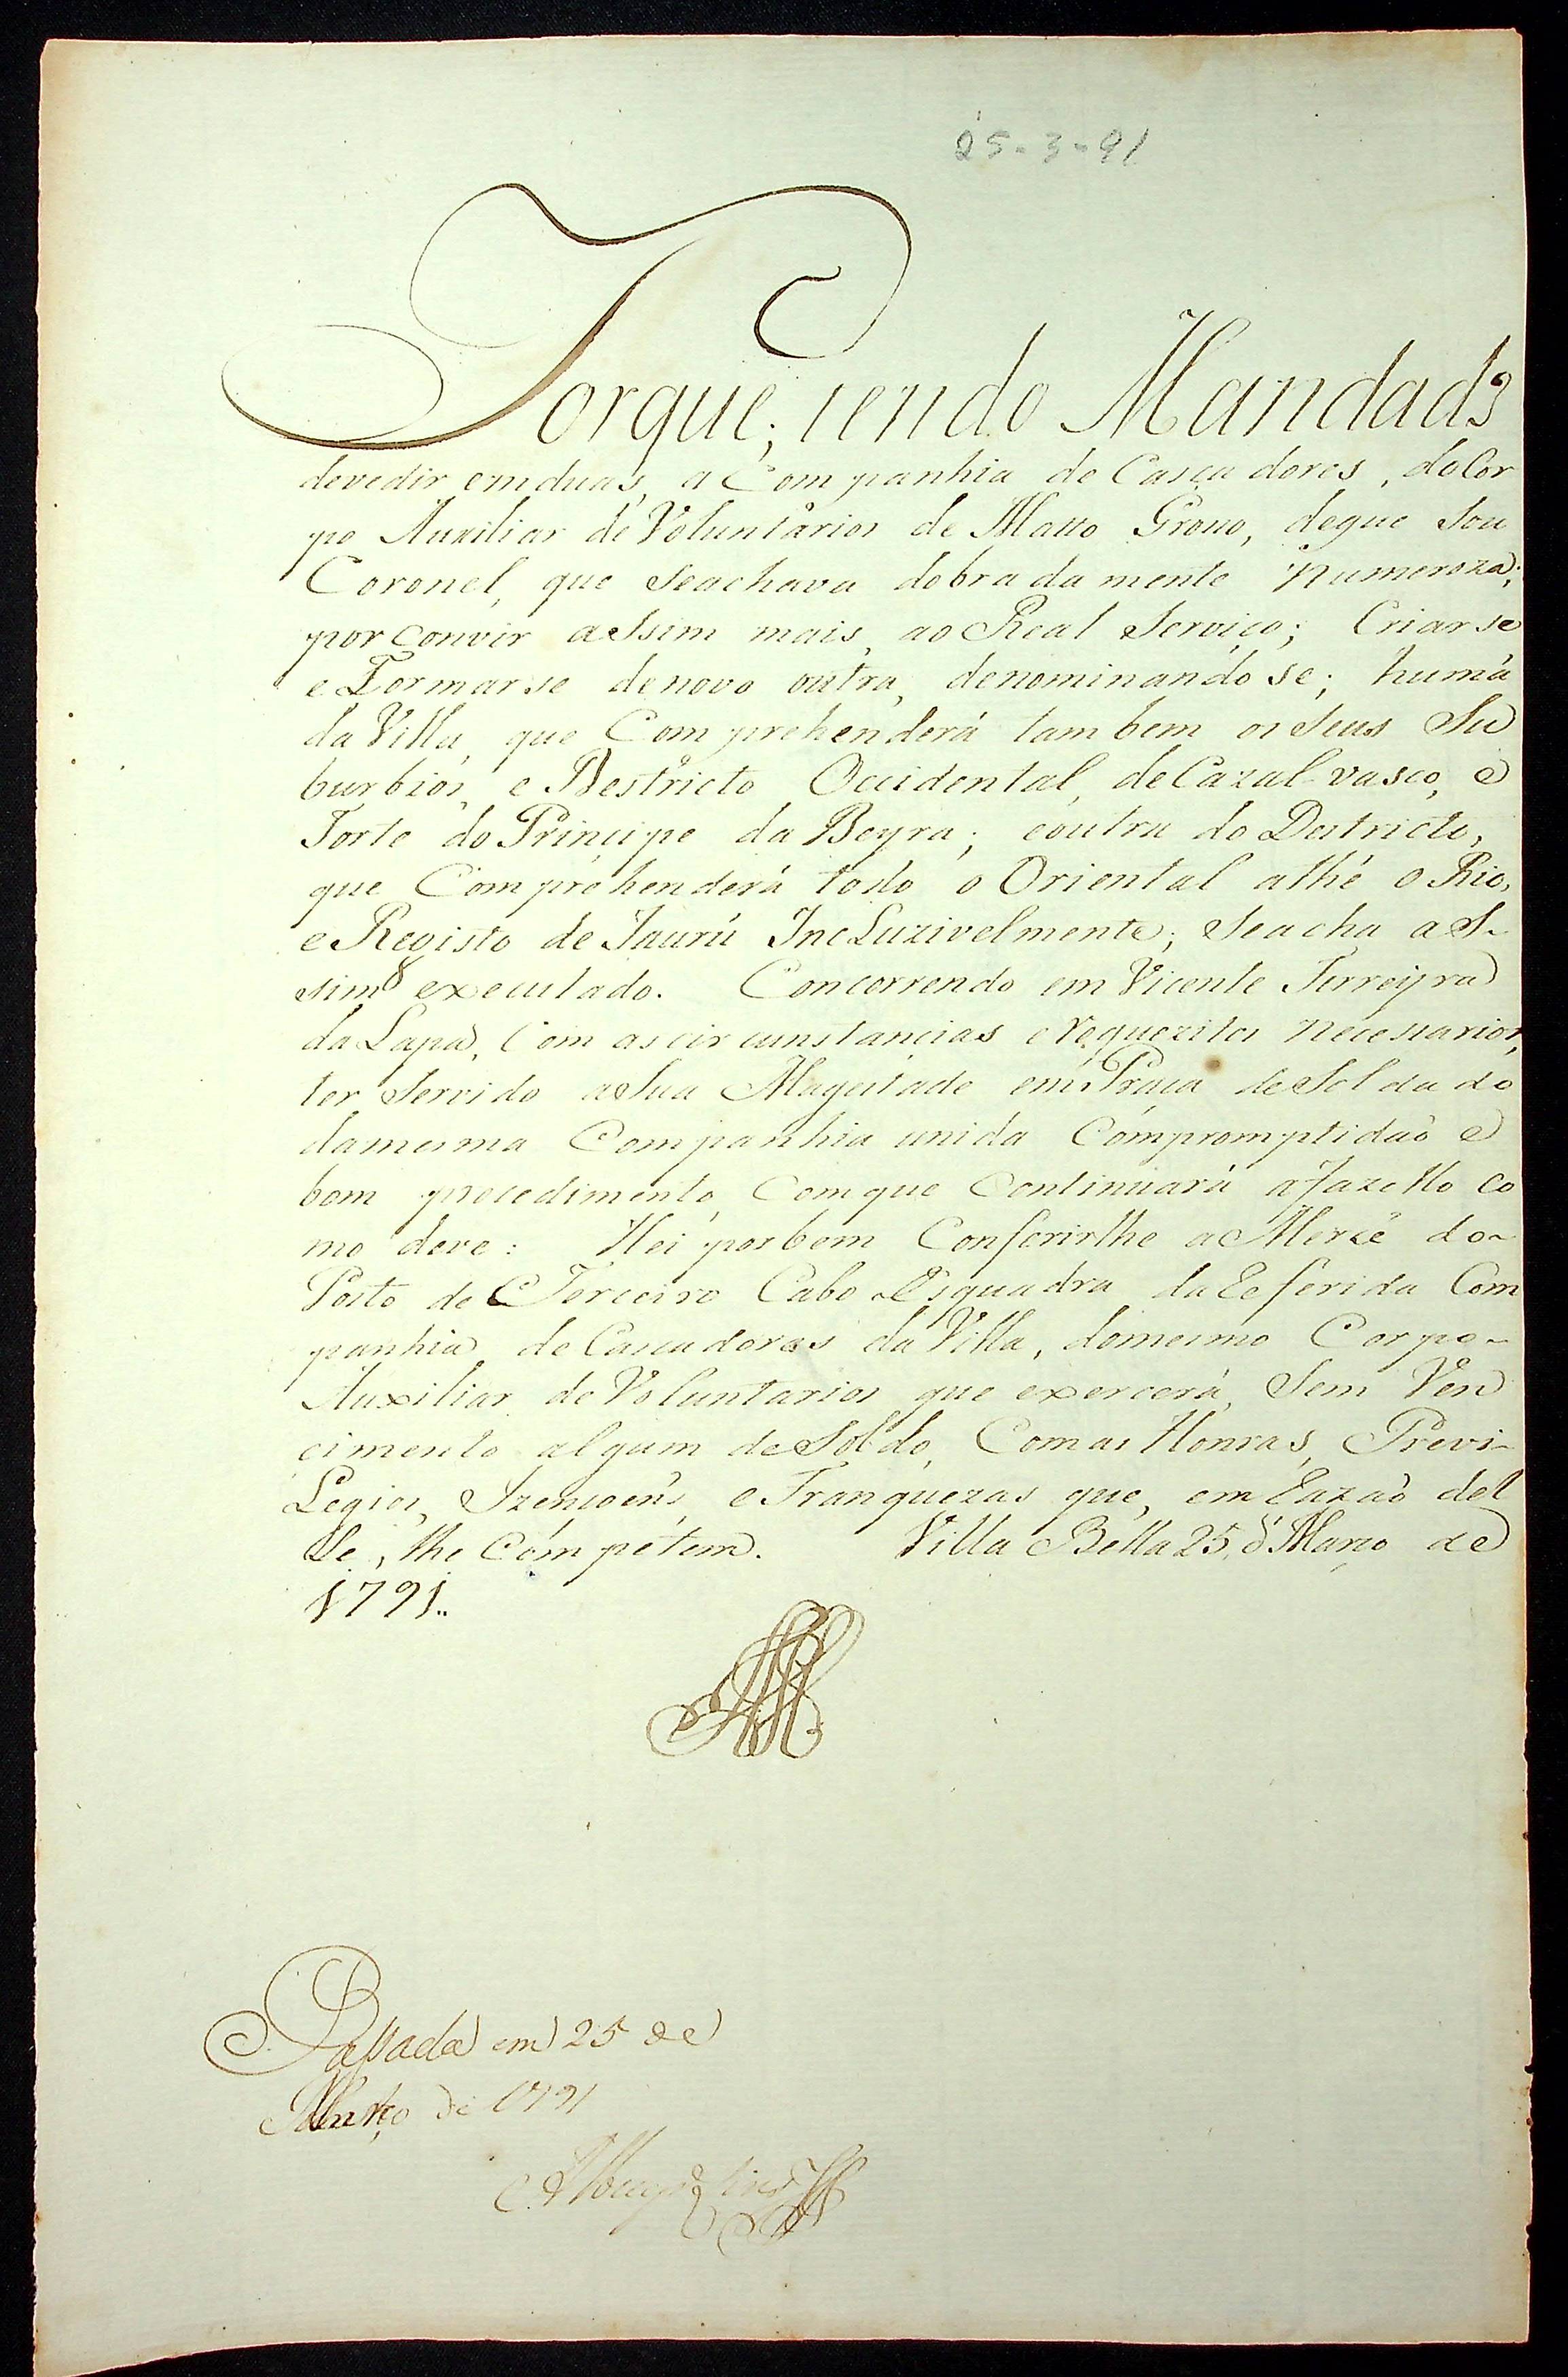 25-3-91
Porque, sendo Mandado
devedir em duas, a Companhia de Casçadores, do Cor
po Auxiliar de Voluntarios de Matto Grosso, deque Sou
Coronel, que Seachava dobradamente numeroza;
por convir aSsim mais, ao Real Serviço; Criarse
e Formarse denovo outra, denominandose; huma
da Villa, que Comprehenderá tambem os Seus Su
burbios, e Destricto Occidental, de Cazalvasco, e
Forte do Principe da Beyra; eoutra do Destricto,
que Comprehenderá todo o Oriental athé o Rio,
e Registo de Jaurú IncLuzivelmente; Seacha aS-
sim executado. Concorrendo em Vicente Ferreyra
da Lapa, Com as circunstancias e requezitos necesarios,
ter Servido aSua Magestade em Praça deSoldado
damesma Companhia unida Compromptidaõ e
bom procedimento, Comque Continuará afazello co
mo deve: Hei porbem Conferirlhe a Mercê do-
Posto de Terceiro Cabo Esquadra da Referida Com
panhia de Cascadores da Villa, domesmo Corpo-
Auxiliar de Voluntarios que exercerá, Sem Ven
cimento algum deSoldo, Comas Honras, Previ-
Legios, Izençoẽns, e Franquezas que, em Razaõ del
le, lhe Competem. Villa Bella 25, d' Março de
1791..
Passada em 25 de
Março de 1791